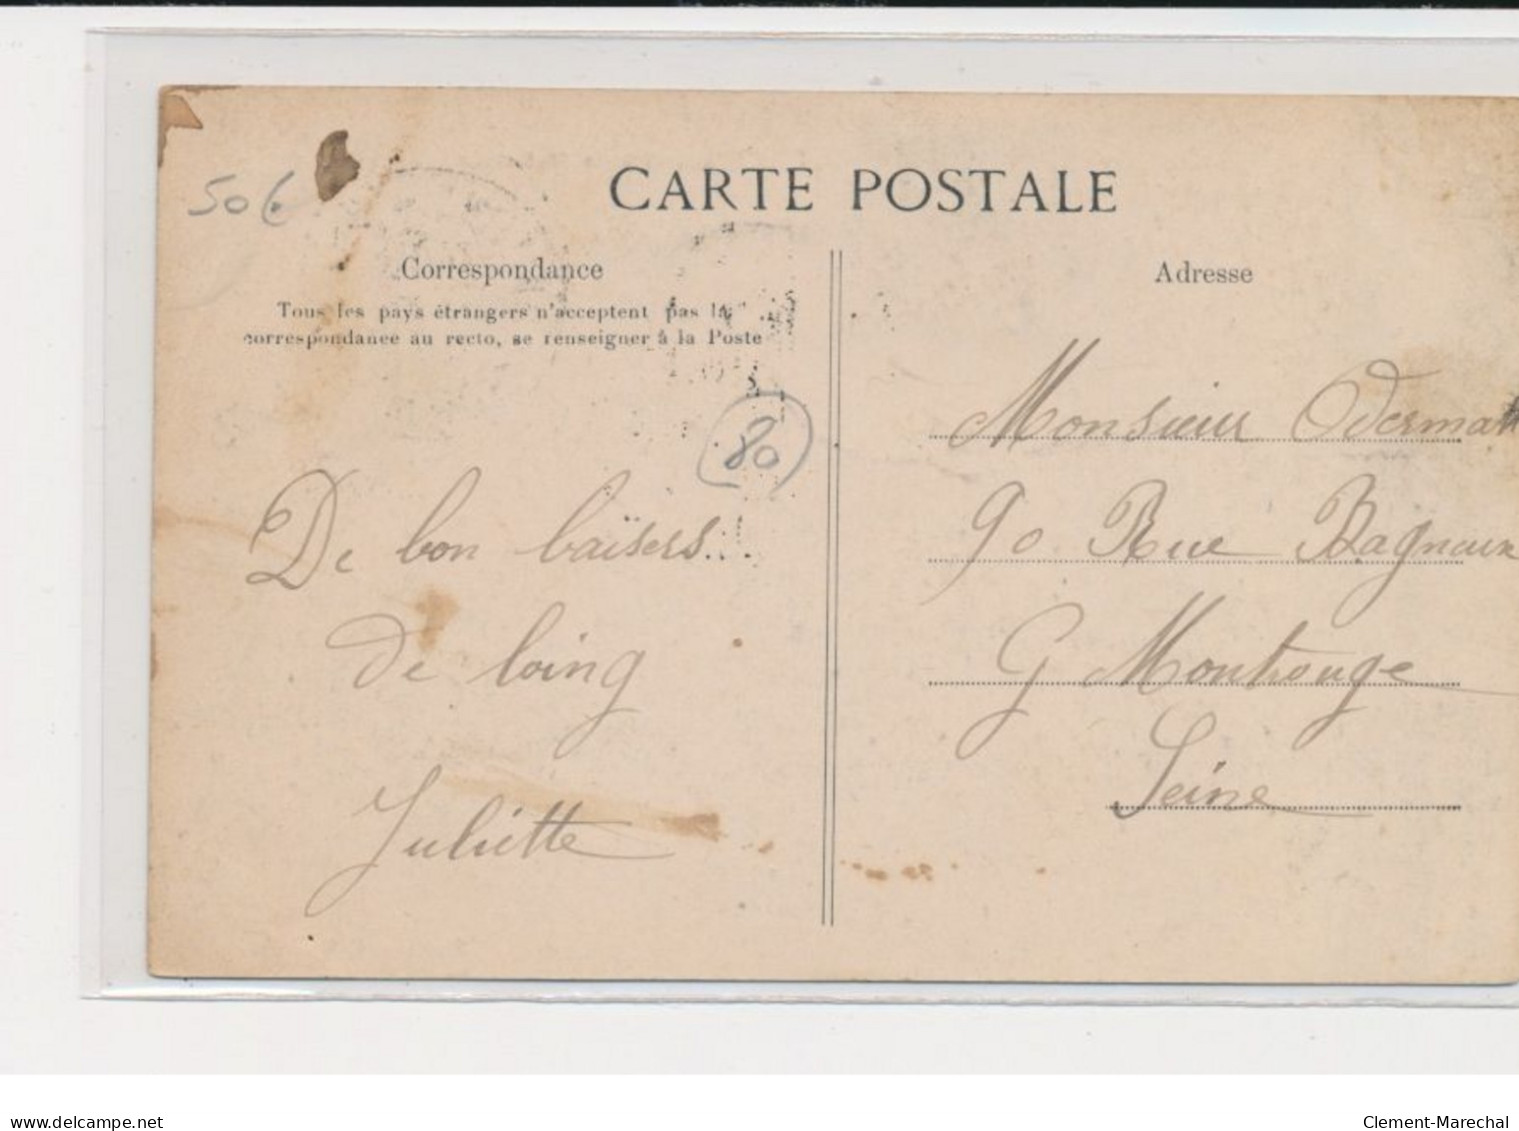 50€
CARTE POSTALE
Correspondance
Tous les pays étrangers n'acceptent pas la
correspondance au recto, se renseigner à la Poste
80
De bon baïsers...
de loing
Juliette
Adresse
Monsieur Odermatt
90 Rue Bagneux
G Montrouge
Seine
delcampe.net
Clement-Marechal